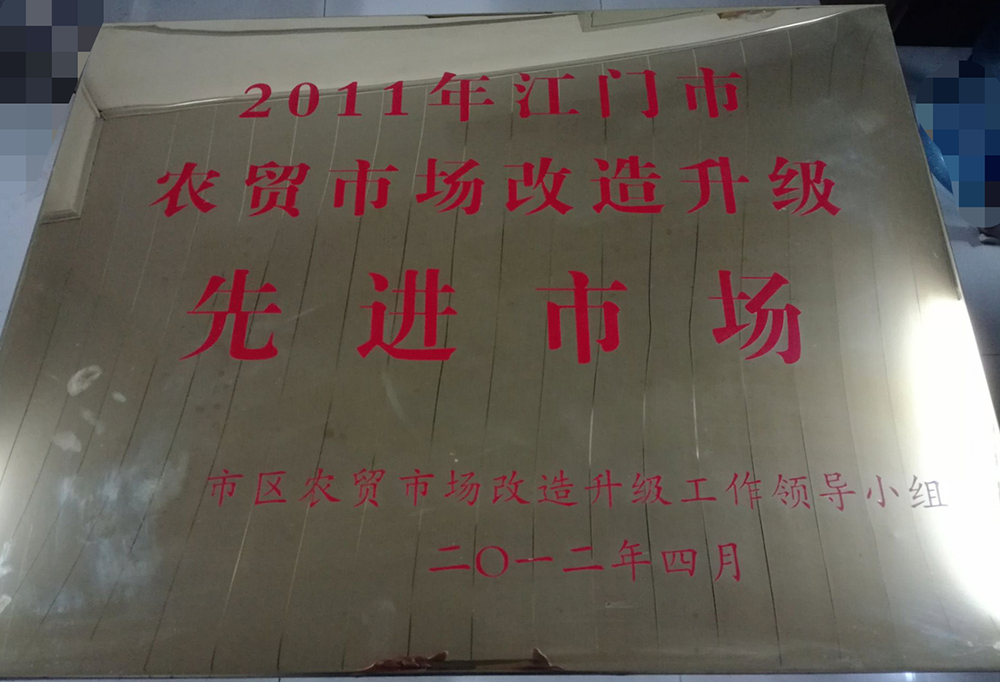 2011年江门市
农贸市场改造升级
先进市场
市区农贸市场改造升级工作领导小组
二〇一二年四月